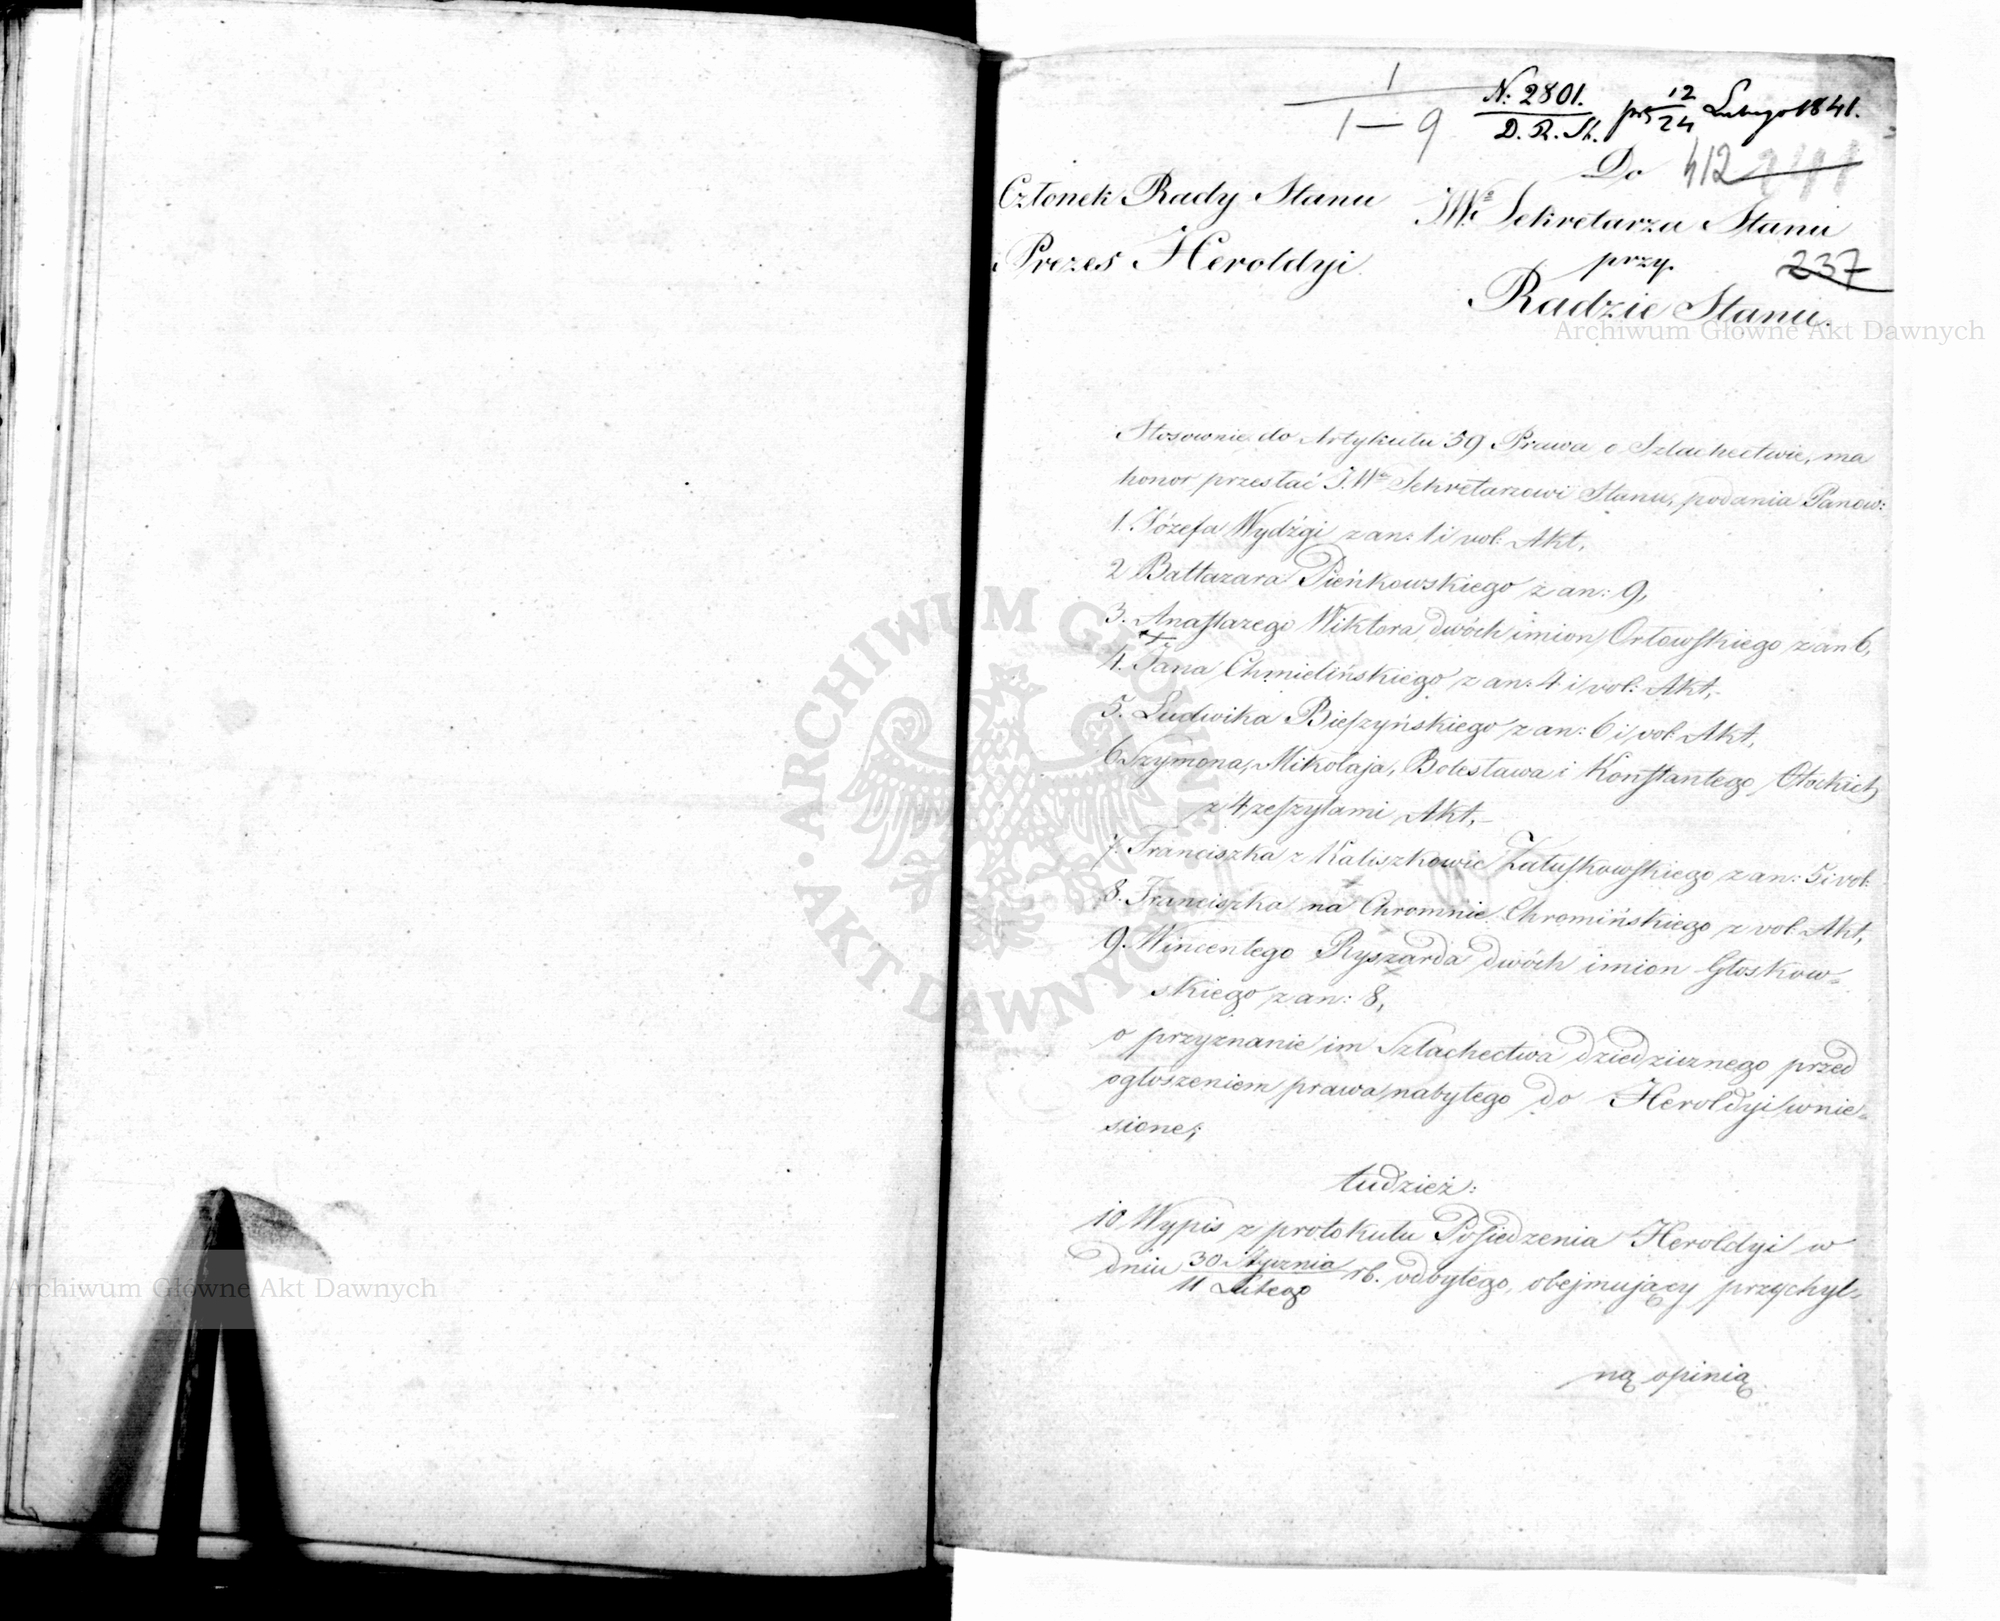 1
1 — 9
N: 2801.
D. R. St.
prz 12/24 Lutego 1841.
Do 412
Członek Rady Stanu
Prezes Heroldyi.
JWo Sekretarza Stanu
przy
237
Radzie Stanu.
Archiwum Główne Akt Dawnych
Stosownie do Artykułu 39 Prawa o Szlachectwie, ma
honor przesłać J.Wu Sekretarzowi Stanu, podania Panów:
1. Józefa Wydżgi z an: 1 i vol: Akt,
2 Baltazara Pieńkowskiego z an: 9,
3. Anastazego Wiktora dwóch imion Orłowskiego z an 6,
4. Jana Chmielińskiego z an: 4 i vol: Akt,
5. Ludwika Bieszyńskiego z an: 6 i vol: Akt,
6 Szymona, Mikołaja, Bolesława i Konstantego Otockich
z 4 zeszytami Akt,
7. Franciszka z Kaliszkowic Załuskowskiego z an: 5 i vol:
8. Franciszka na Chromnie Chromińskiego z vol: Akt,
9. Wincentego Ryszarda dwóch imion Głoskow-
skiego z an: 8,
o przyznanie im Szlachectwa dziedzicznego przed
ogłoszeniem prawa nabytego do Heroldyi wnie-
sione;
tudzież:
10 Wypis z protokułu Posiedzenia Heroldyi w
dniu 30 Stycznia/11 Lutego rb. odbytego, obejmujący przychyl-
ną opinią
ARCHIWUM GŁÓWNE AKT DAWNYCH
Archiwum Główne Akt Dawnych